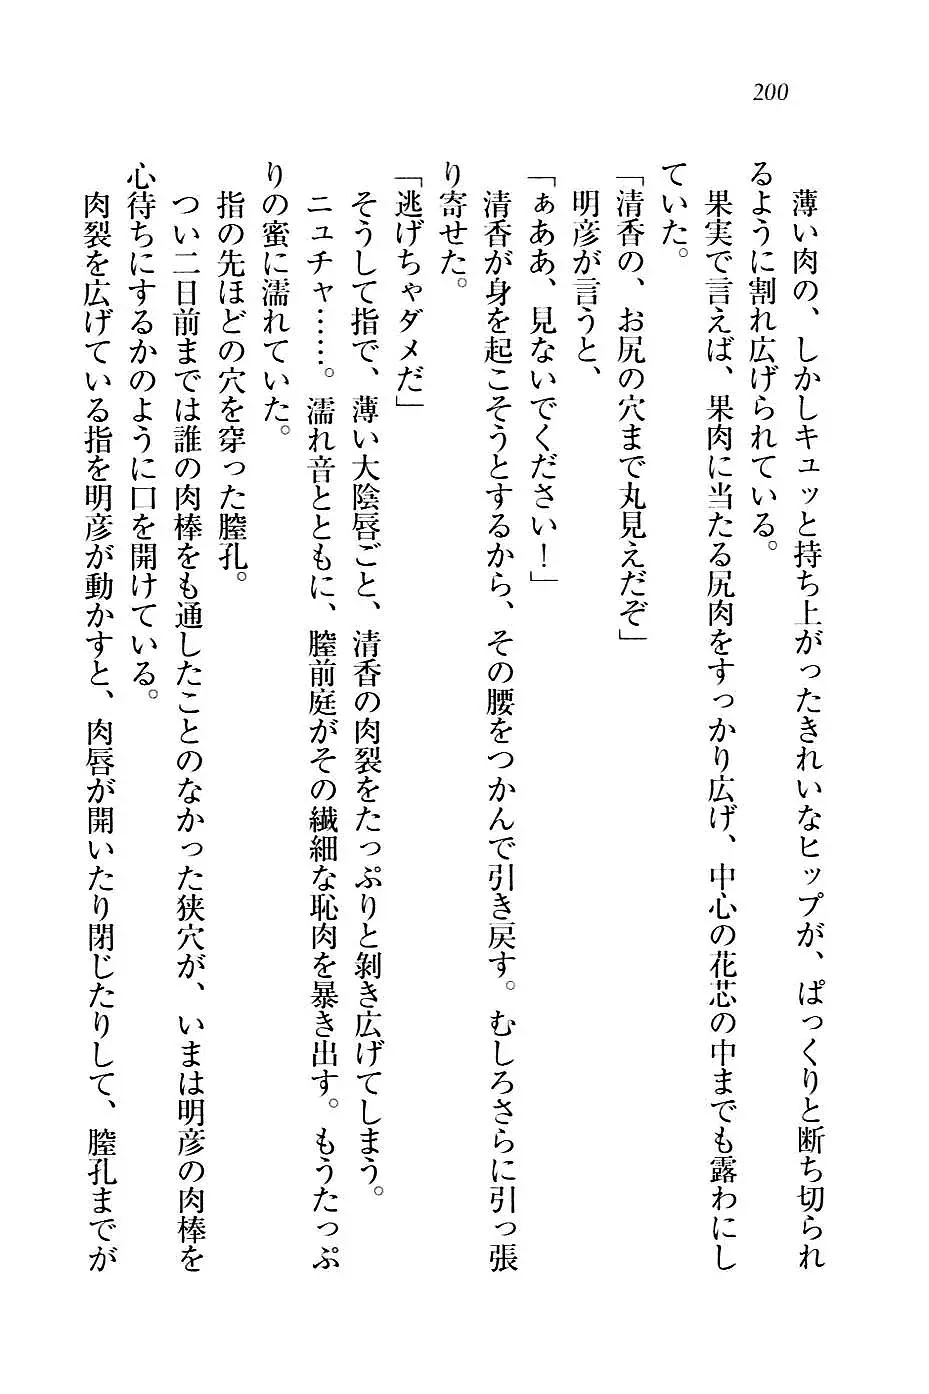 200
薄い肉の、しかしキュッと持ち上がったきれいなヒップが、ぱっくりと断ち切られ
るように割れ広げられている。
果実で言えば、果肉に当たる尻肉をすっかり広げ、中心の花芯の中までも露わにし
ていた。
「清香の、お尻の穴まで丸見えだぞ」
明彦が言うと、
「ぁああ、見ないでください！」
清香が身を起こそうとするから、その腰をつかんで引き戻す。むしろさらに引っ張
り寄せた。
「逃げちゃダメだ」
そうして指で、薄い大陰唇ごと、清香の肉裂をたっぷりと剝き広げてしまう。
ニュチャ……。濡れ音とともに、膣前庭がその繊細な恥肉を暴き出す。もうたっぷ
りの蜜に濡れていた。
指の先ほどの穴を穿った膣孔。
つい二日前までは誰の肉棒をも通したことのなかった狭穴が、いまは明彦の肉棒を
心待ちにするかのように口を開けている。
肉裂を広げている指を明彦が動かすと、肉唇が開いたり閉じたりして、膣孔までが